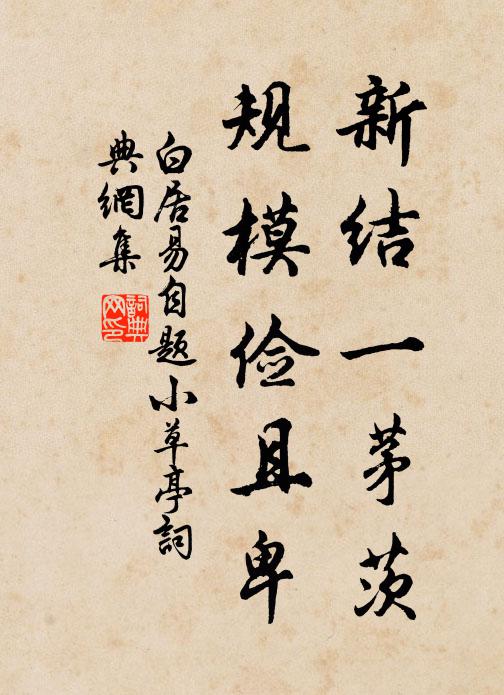 新结一茅茨
规模俭且卑
白居易自题小草亭詞
典網集
詞典网印